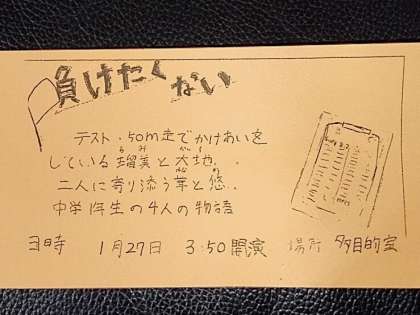 負けたくない
テスト・50m走でかけあいを
るみ
している瑠美と大地..
二人に寄り添う と悠..
中学1年生の4人の物語
日時 1月27日 3:50開演 場所 多目的室